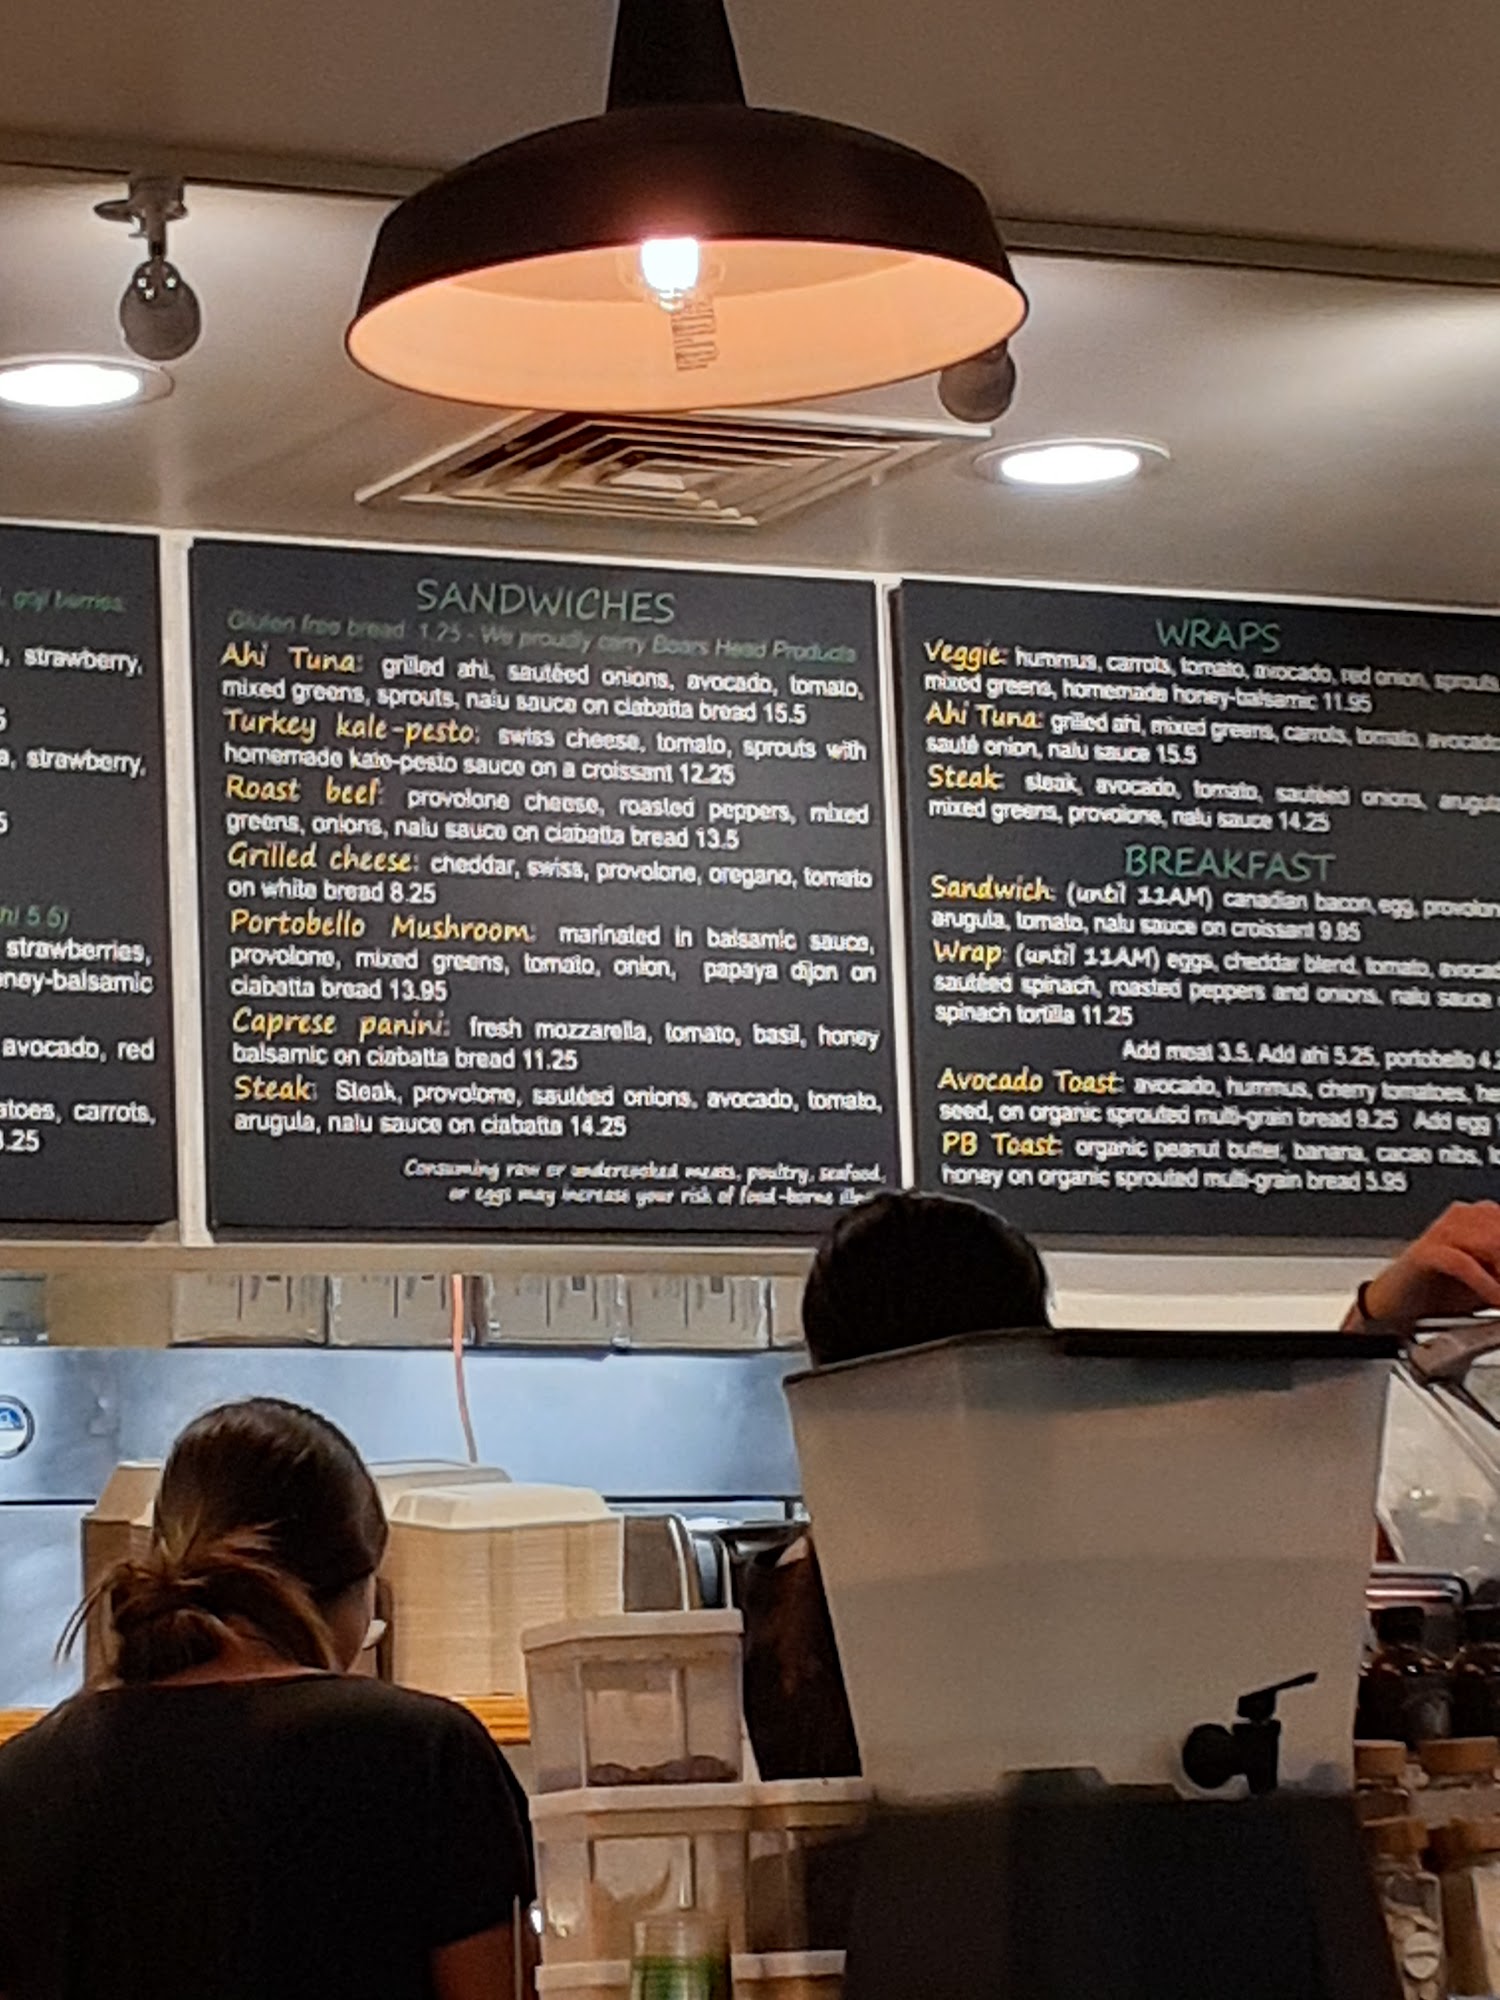 goji berries
strawberry,
strawberry,
5.5)
strawberries,
honey-balsamic
avocado, red
carrots,
.25
SANDWICHES
Gluten free bread 1.25 - We proudly carry Boars Head Products
Ahi Tuna: grilled ahi, sautéed onions, avocado, tomato,
mixed greens, sprouts, nalu sauce on ciabatta bread 15.5
Turkey kale-pesto: swiss cheese, tomato, sprouts with
homemade kale-pesto sauce on a croissant 12.25
Roast beef: provolone cheese, roasted peppers, mixed
greens, onions, nalu sauce on ciabatta bread 13.5
Grilled cheese: cheddar, swiss, provolone, oregano, tomato
on white bread 8.25
Portobello Mushroom: marinated in balsamic sauce,
provolone, mixed greens, tomato, onion, papaya dijon on
ciabatta bread 13.95
Caprese panini: fresh mozzarella, tomato, basil, honey
balsamic on ciabatta bread 11.25
Steak: Steak, provolone, sautéed onions, avocado, tomato,
arugula, nalu sauce on ciabatta 14.25
Consuming raw or undercooked meats, poultry, seafood,
or eggs may increase your risk of food-borne
WRAPS
Veggie: hummus, carrots, tomato, avocado, red onion, sprouts
mixed greens, homemade honey-balsamic 11.95
Ahi Tuna: grilled ahi, mixed greens, carrots, tomato, avocado
sauté onion, nalu sauce 15.5
Steak: steak, avocado, tomato, sautéed onions, arugula
mixed greens, provolone, nalu sauce 14.25
BREAKFAST
Sandwich: (until 11AM) canadian bacon, egg, provolon
arugula, tomato, nalu sauce on croissant 9.95
Wrap: (until 11AM) eggs, cheddar blend, tomato, avocad
sautéed spinach, roasted peppers and onions, nalu sauce
spinach tortilla 11.25
Add meat 3.5. Add ahi 5.25. portobello 4.2
Avocado Toast: avocado, hummus, cherry tomatoes, he
seed, on organic sprouted multi-grain bread 9.25 Add egg
PB Toast: organic peanut butter, banana, cacao nibs,
honey on organic sprouted multi-grain bread 5.95